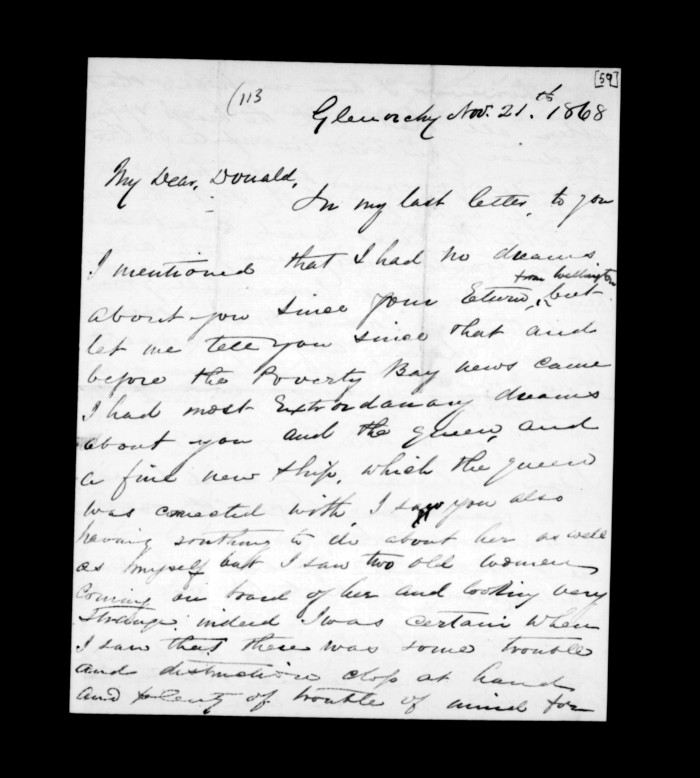 [59]
(113
Glenorchy Nov. 21.th 1868
My Dear, Donald,
In my last letter, to you
I mentioned that I had no dreams
from Wellington
about you since your Eturn, but
let me tell you since that and
before the Poverty Bay news came
I had most Extrordanary dreams
about you and the queen, and
a fine new ship, which the queen
was conected with, I saw you also
having somthing to do about her as well
as myself but I saw two old women
coming on board of her and looking very
strange indeed I was certain when
I saw that there was some trouble
and distruction clos at hand
and plenty of trouble of mind for